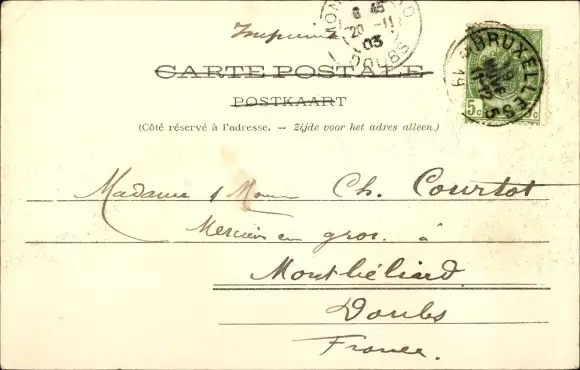 Imprimé
CARTE POSTALE
POSTKAART
(Côté réservé à l'adresse. — Zijde voor het adres alleen.)
BRUXELLES 5
5c 5c
20 -11
03
DOUBS
Madame & Mons Ch. Courtot
Merciers en gros. à
Montbéliard
Doubs
France.